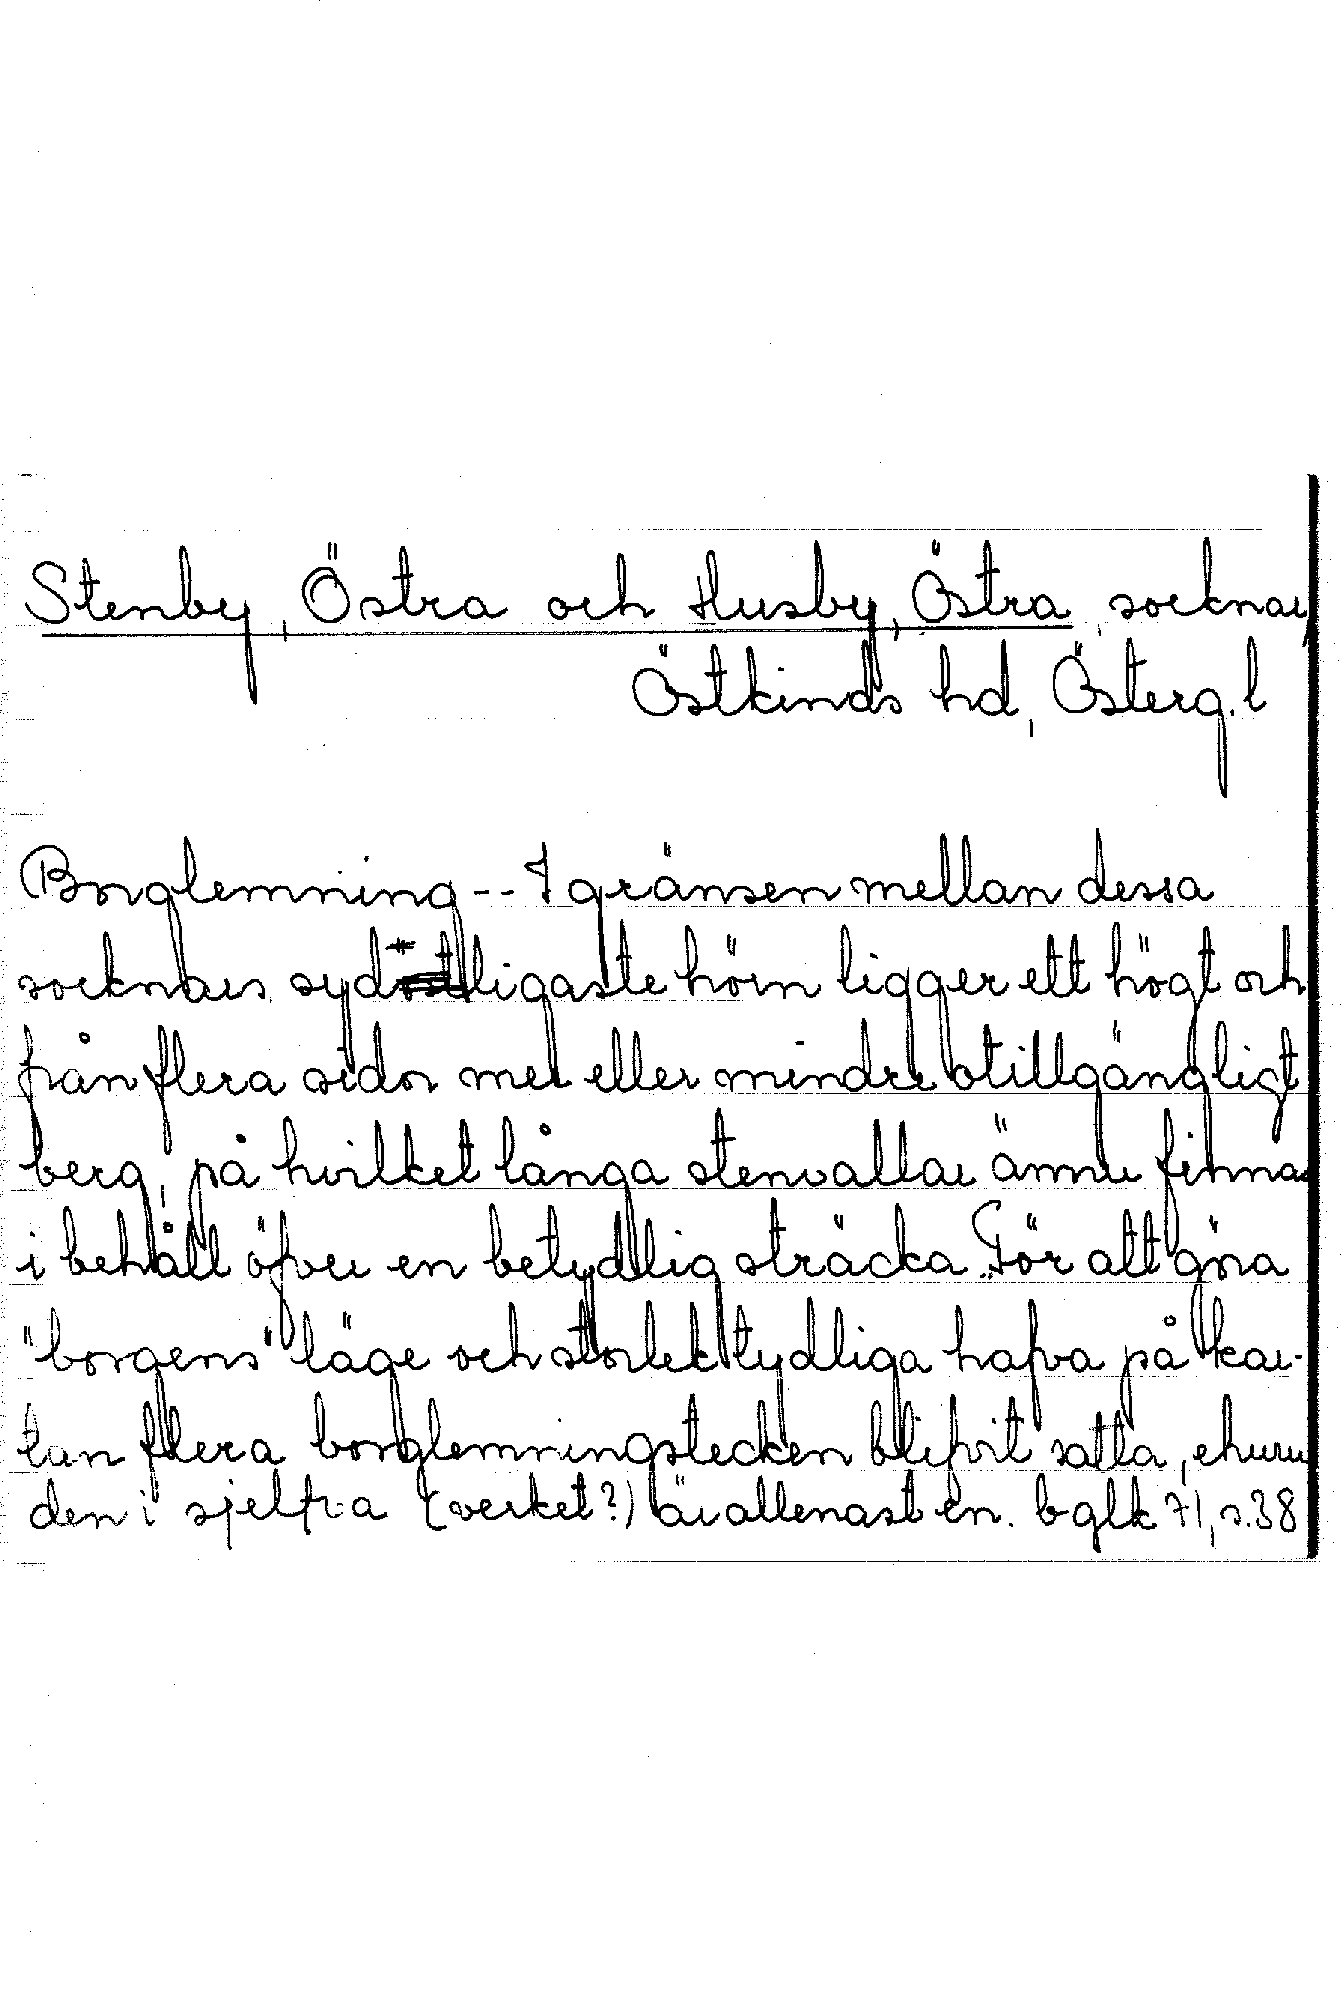 Stenby, Östra och Husby, Östra, socknar,
Östkinds hd, Österg. l
Borglemning -- I gränsen mellan dessa
socknars sydligaste hörn ligger ett högt och
från flera sidor mer eller mindre otillgängligt
berg, på hvilket långa stenvallar ännu finnas
i behåll öfver en betydlig sträcka. För att göra
"borgens" läge och storlek tydliga hafva på kar-
tan flera borglemningstecken blifvit satta, ehuru
den i sjelfva (verket?) är allenast en. bglk 71, s. 38